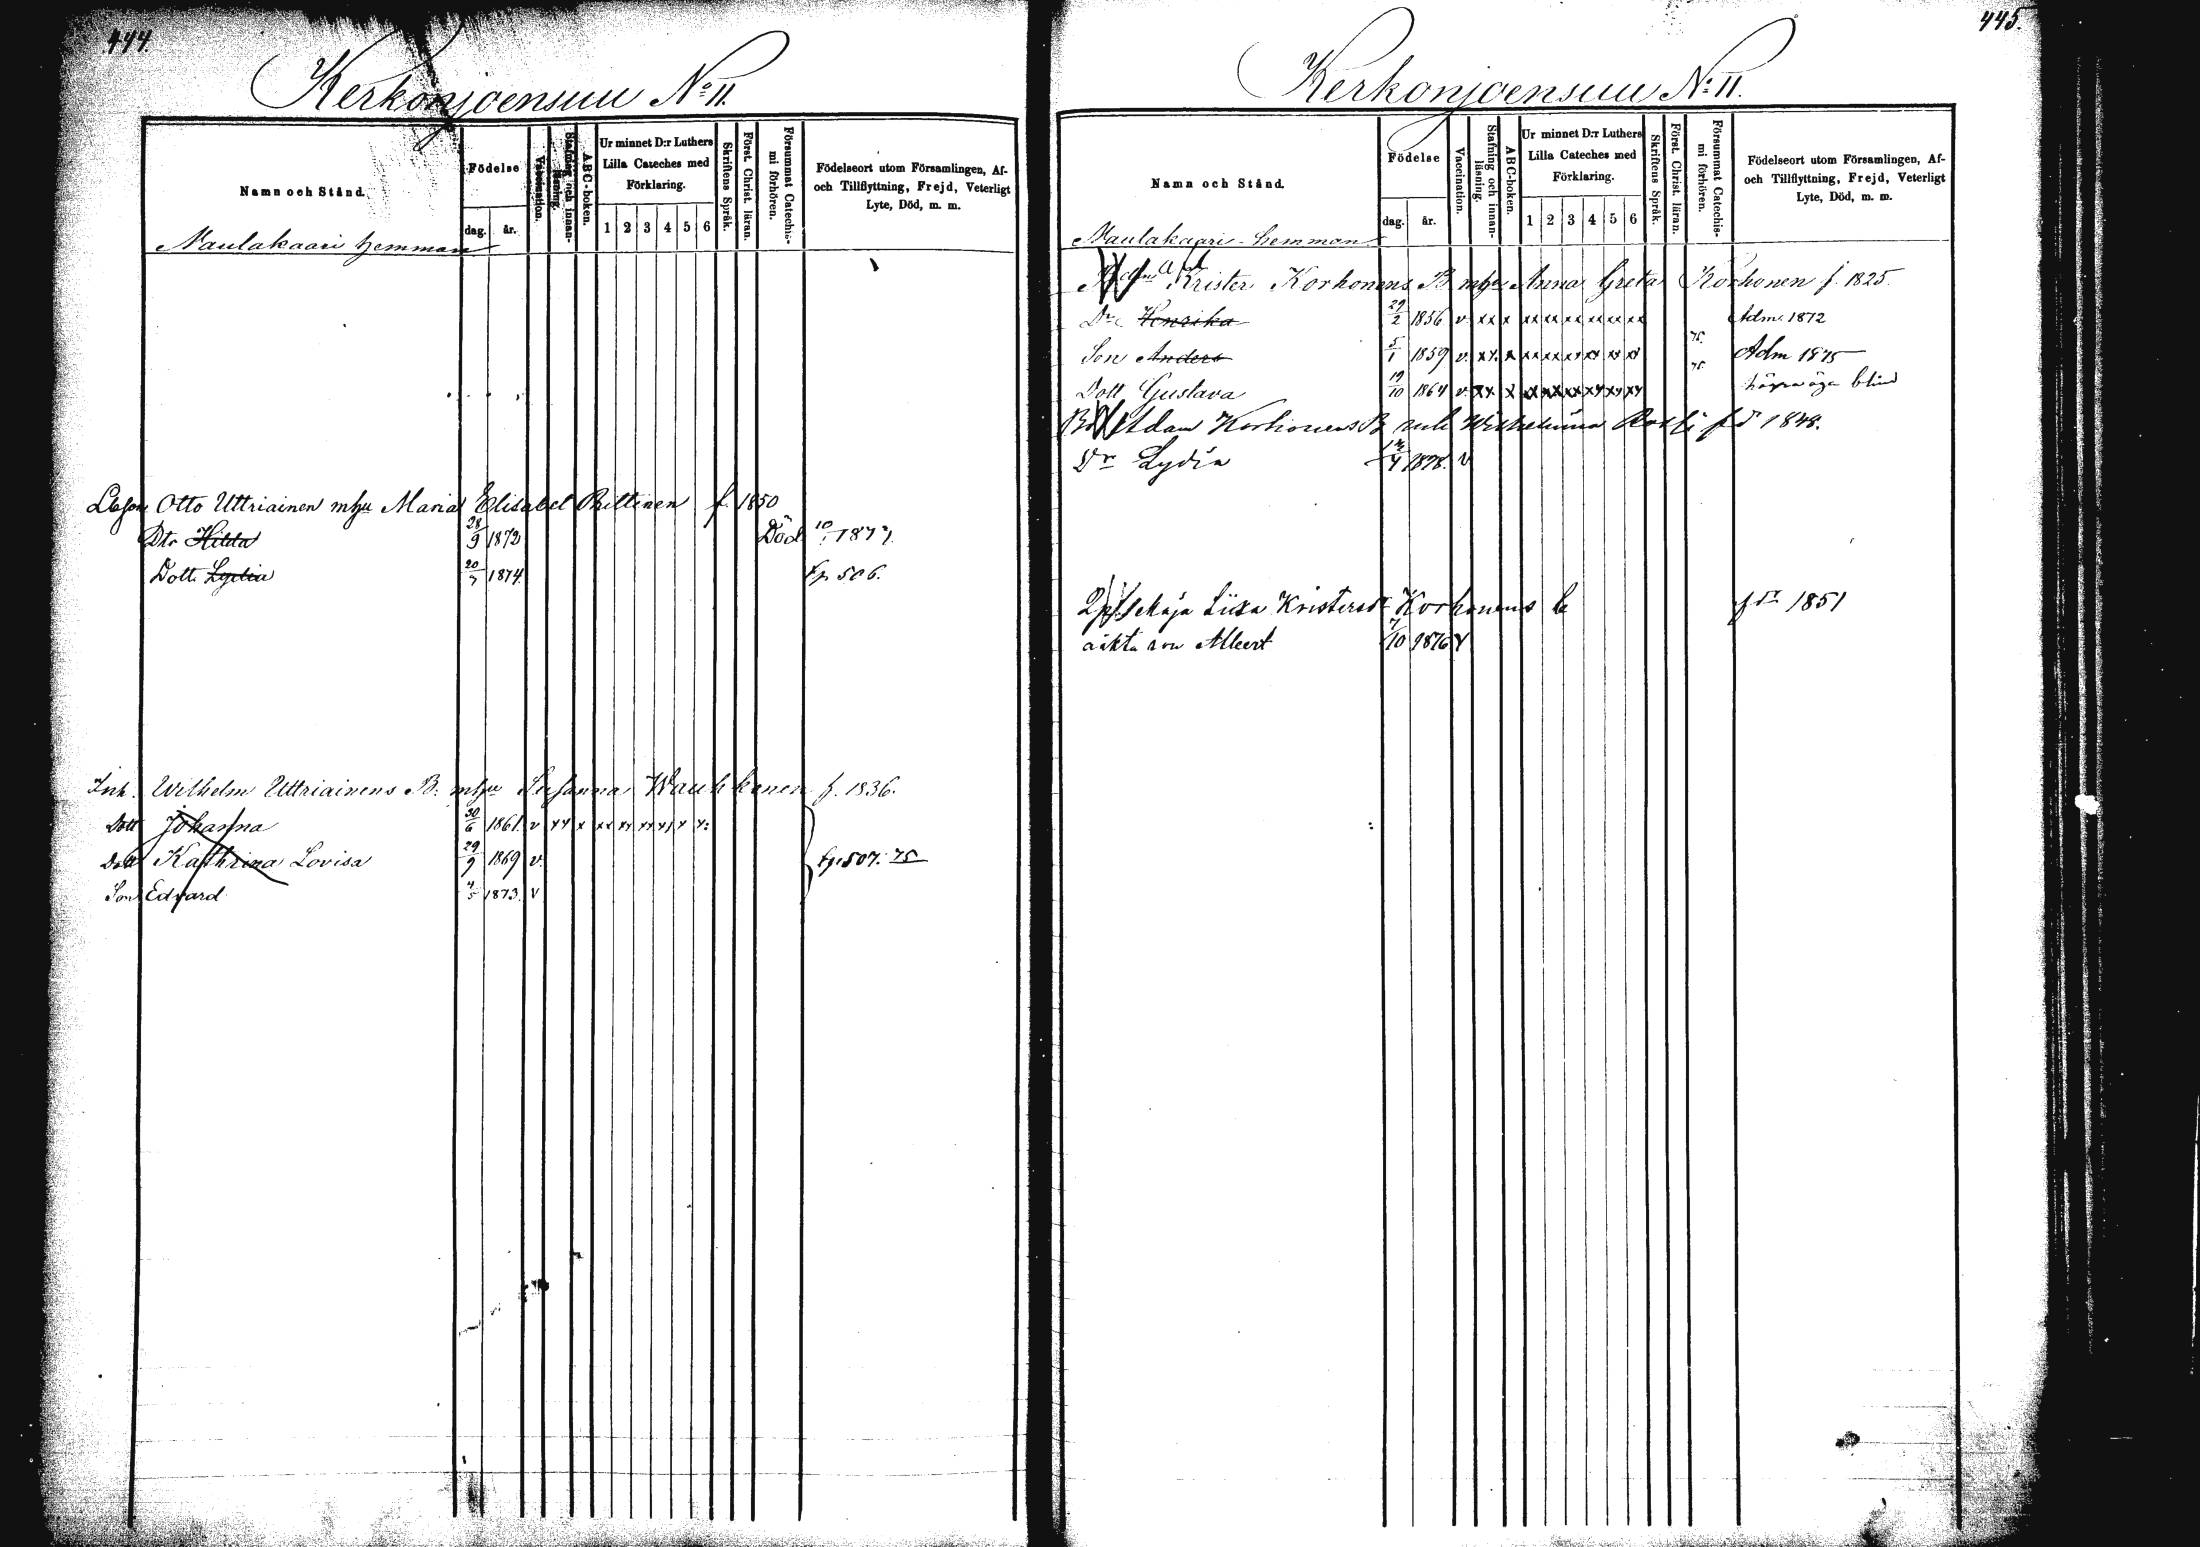 444.
Kerkonjoensuu No II.
Namn och Stånd.
Födelse
dag.
år.
Vaccination.
Stafning och innan-
läsning.
ABC-boken.
Ur minnet D:r Luthers
Lilla Cateches med
Förklaring.
1 2 3 4 5 6
Skriftens Språk.
Först. Christ. läran.
Försummat Catechis-
mi förhören.
Födelseort utom Församlingen, Af-
och Tillflyttning, Frejd, Veterligt
Lyte, Död, m. m.
Naulakaari hemman
Otto Uttriainen mhu Maria Elisabet Rittinen f. 1850
Dtr Hilda 28/9 1872 Död 10/
Dott. Lydia 20/7 1874. fp 506.
Inh. Wilhelm Uttriainens B. mhu Susanna Wauhkonen f. 1836.
Dott Johanna 30/6 1861. v xx x xx xx xx xx x x:
Dott Kathrina Lovisa 29/9 1869 v. fp 507. 75
Son Edvard 4/5 1873. v
445.
Kerkonjoensuu No II.
Namn och Stånd.
Födelse
dag.
år.
Vaccination.
Stafning och innan-
läsning.
ABC-boken.
Ur minnet D:r Luthers
Lilla Cateches med
Förklaring.
1 2 3 4 5 6
Skriftens Språk.
Först. Christ. läran.
Försummat Catechis-
mi förhören.
Födelseort utom Församlingen, Af-
och Tillflyttning, Frejd, Veterligt
Lyte, Död, m. m.
Naulakaari hemman
Krister Korhonens B mhu Anna Greta Korhonen f. 1825.
Dr Henrika 29/2 1856 v. xx x xx xx xx xx xx xx Adm. 1872
Son Anders 5/1 1859 v. xx. x xx xx xx xx xx xx 75. Adm 1875
Dott Gustava 19/10 1864 v. xx x xx xx xx xx xx xx 75. högra öga blind
Adam Korhonens B Wilhelmina fd 1848.
Dr Lydia /4 1878. v
Maja Liisa Kristersdr Korhonens fdr 1851
äkta son Albert 7/10 1876 v